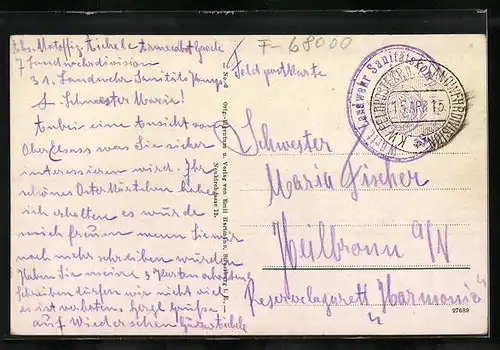 F-68000
Abs. Unteroffiz. Eichele Armeeabt. Gaede
7 Landwehrdivision
31. Landwehr Sanitäts Komp.
L. Schwester Maria!
Anbei eine Ansicht aus
Ober Elsass was Sie sicher
interessieren wird. Ihr
schönes Osterkärtchen habe
ich erhalten es würde
mich freuen wenn Sie mir
noch mehr schreiben würden
Haben Sie meine 3 Karten erhalten
Schreiben dürfen wir nicht viel
es ist verboten. Herzl. Grüße
auf Wiedersehen
No. 2
Orig.-Aufnahme u. Verlag von Emil Hartmann, Straßburg i. E.
Neukirchgasse 12.
Feldpostkarte
Landwehr Sanitätskomp.
15 APR 15
Schwester
Maria Fischer
Heilbronn a/N
Reservelazarett "Harmonie"
27689